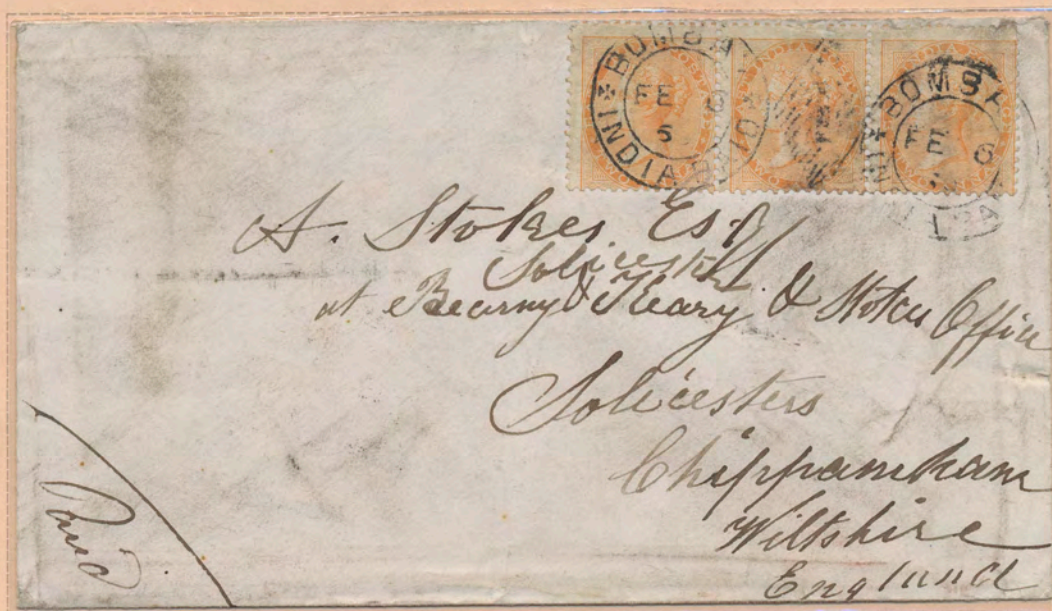 BOMBAY
FE 6
5
INDIA
BOMBA
FE 6
INDIA
A. Stokes, Esq
Solicester
at Bearny & Keary & Stokes Office
Solicesters
Chippamham
Wiltshire
England
Paid